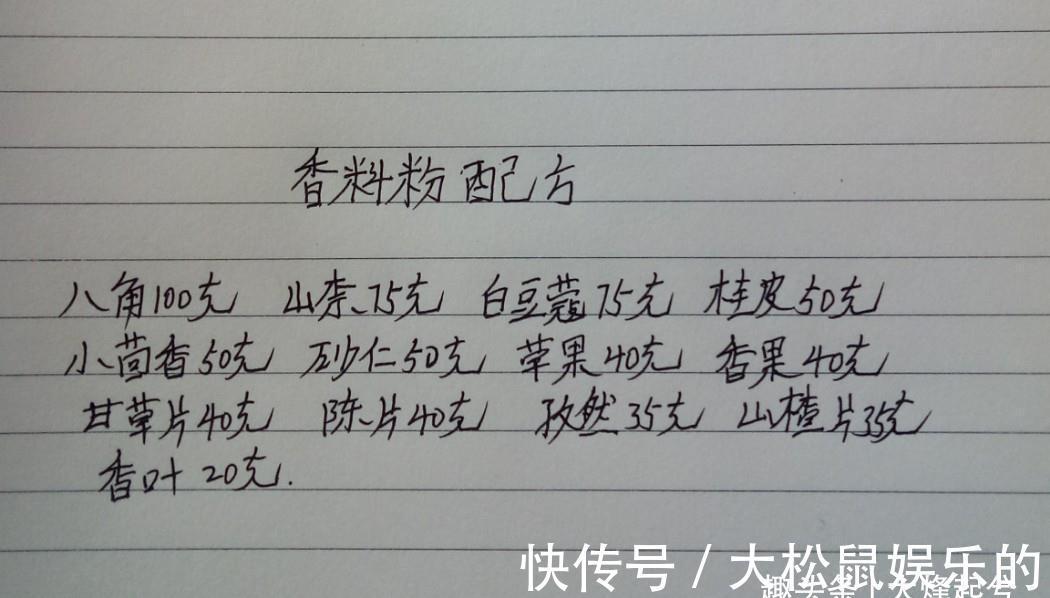 香料粉配方
八角100克 山柰75克 白豆蔻75克 桂皮50克
小茴香50克 砂仁50克 草果40克 香果40克
甘草片40克 陈片40克 孜然35克 山楂片35克
香叶20克.
快传号 / 大松鼠娱乐的